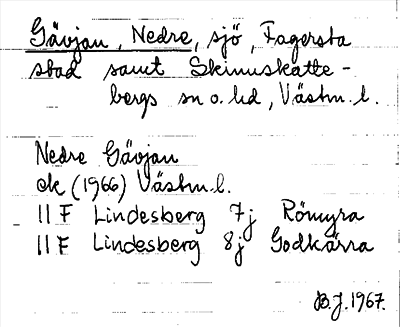 Gävjan, Nedre, sjö, Fagersta
stad samt Skinnskatte-
bergs sn o. hd, Västm. l.
Nedre Gävjan
ek (1966) Västm. l.
11 F Lindesberg 7j Römyra
11 F Lindesberg 8j Godkärra
B.J. 1967.